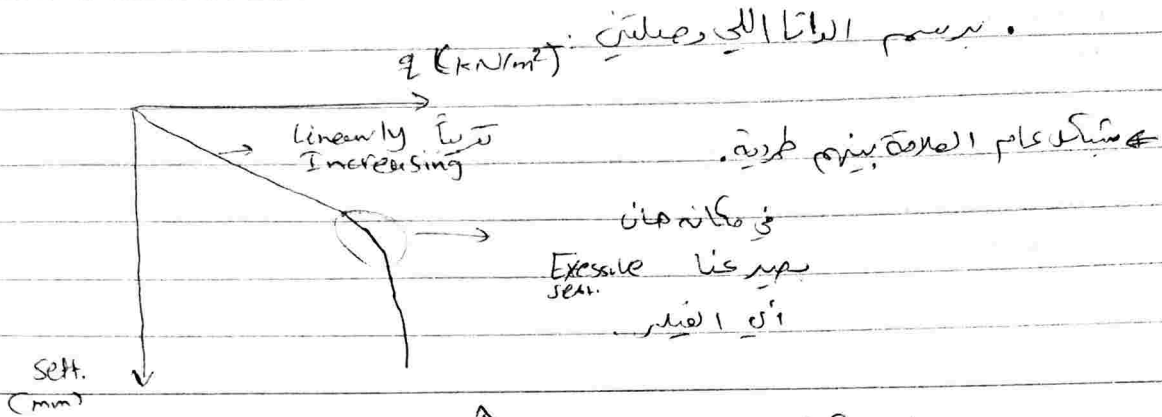 • برسم الداتا اللي وصلتني:
q (kN/m²)
Linearly تقريباً
Increasing
بشكل عام العلاقة بينهم طردية.
في مكانه هان
بصير عنا Exessive
sett.
أي الفيلر
sett.
(mm)